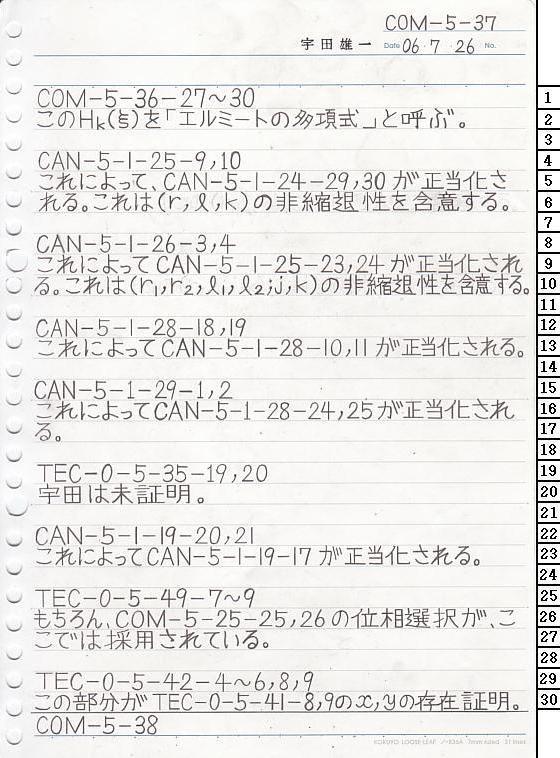 COM-5-37
宇田雄一 Date 06・7・26 No.
COM-5-36-27〜30
このHk(ξ)を「エルミートの多項式」と呼ぶ。
CAN-5-1-25-9,10
これによって、CAN-5-1-24-29,30が正当化さ
れる。これは(r,l,k)の非縮退性を含意する。
CAN-5-1-26-3,4
これによってCAN-5-1-25-23,24が正当化され
る。これは(r1,r2,l1,l2;j,k)の非縮退性を含意する。
CAN-5-1-28-18,19
これによってCAN-5-1-28-10,11が正当化される。
CAN-5-1-29-1,2
これによってCAN-5-1-28-24,25が正当化され
る。
TEC-0-5-35-19,20
宇田は未証明。
CAN-5-1-19-20,21
これによってCAN-5-1-19-17が正当化される。
TEC-0-5-49-7〜9
もちろん、COM-5-25-25,26の位相選択が、こ
こでは採用されている。
TEC-0-5-42-4〜6,8,9
この部分がTEC-0-5-41-8,9のx,yの存在証明。
COM-5-38
KOKUYO LOOSE-LEAF ノ-836A 7mm ruled 31 lines
1
2
3
4
5
6
7
8
9
10
11
12
13
14
15
16
17
18
19
20
21
22
23
24
25
26
27
28
29
30